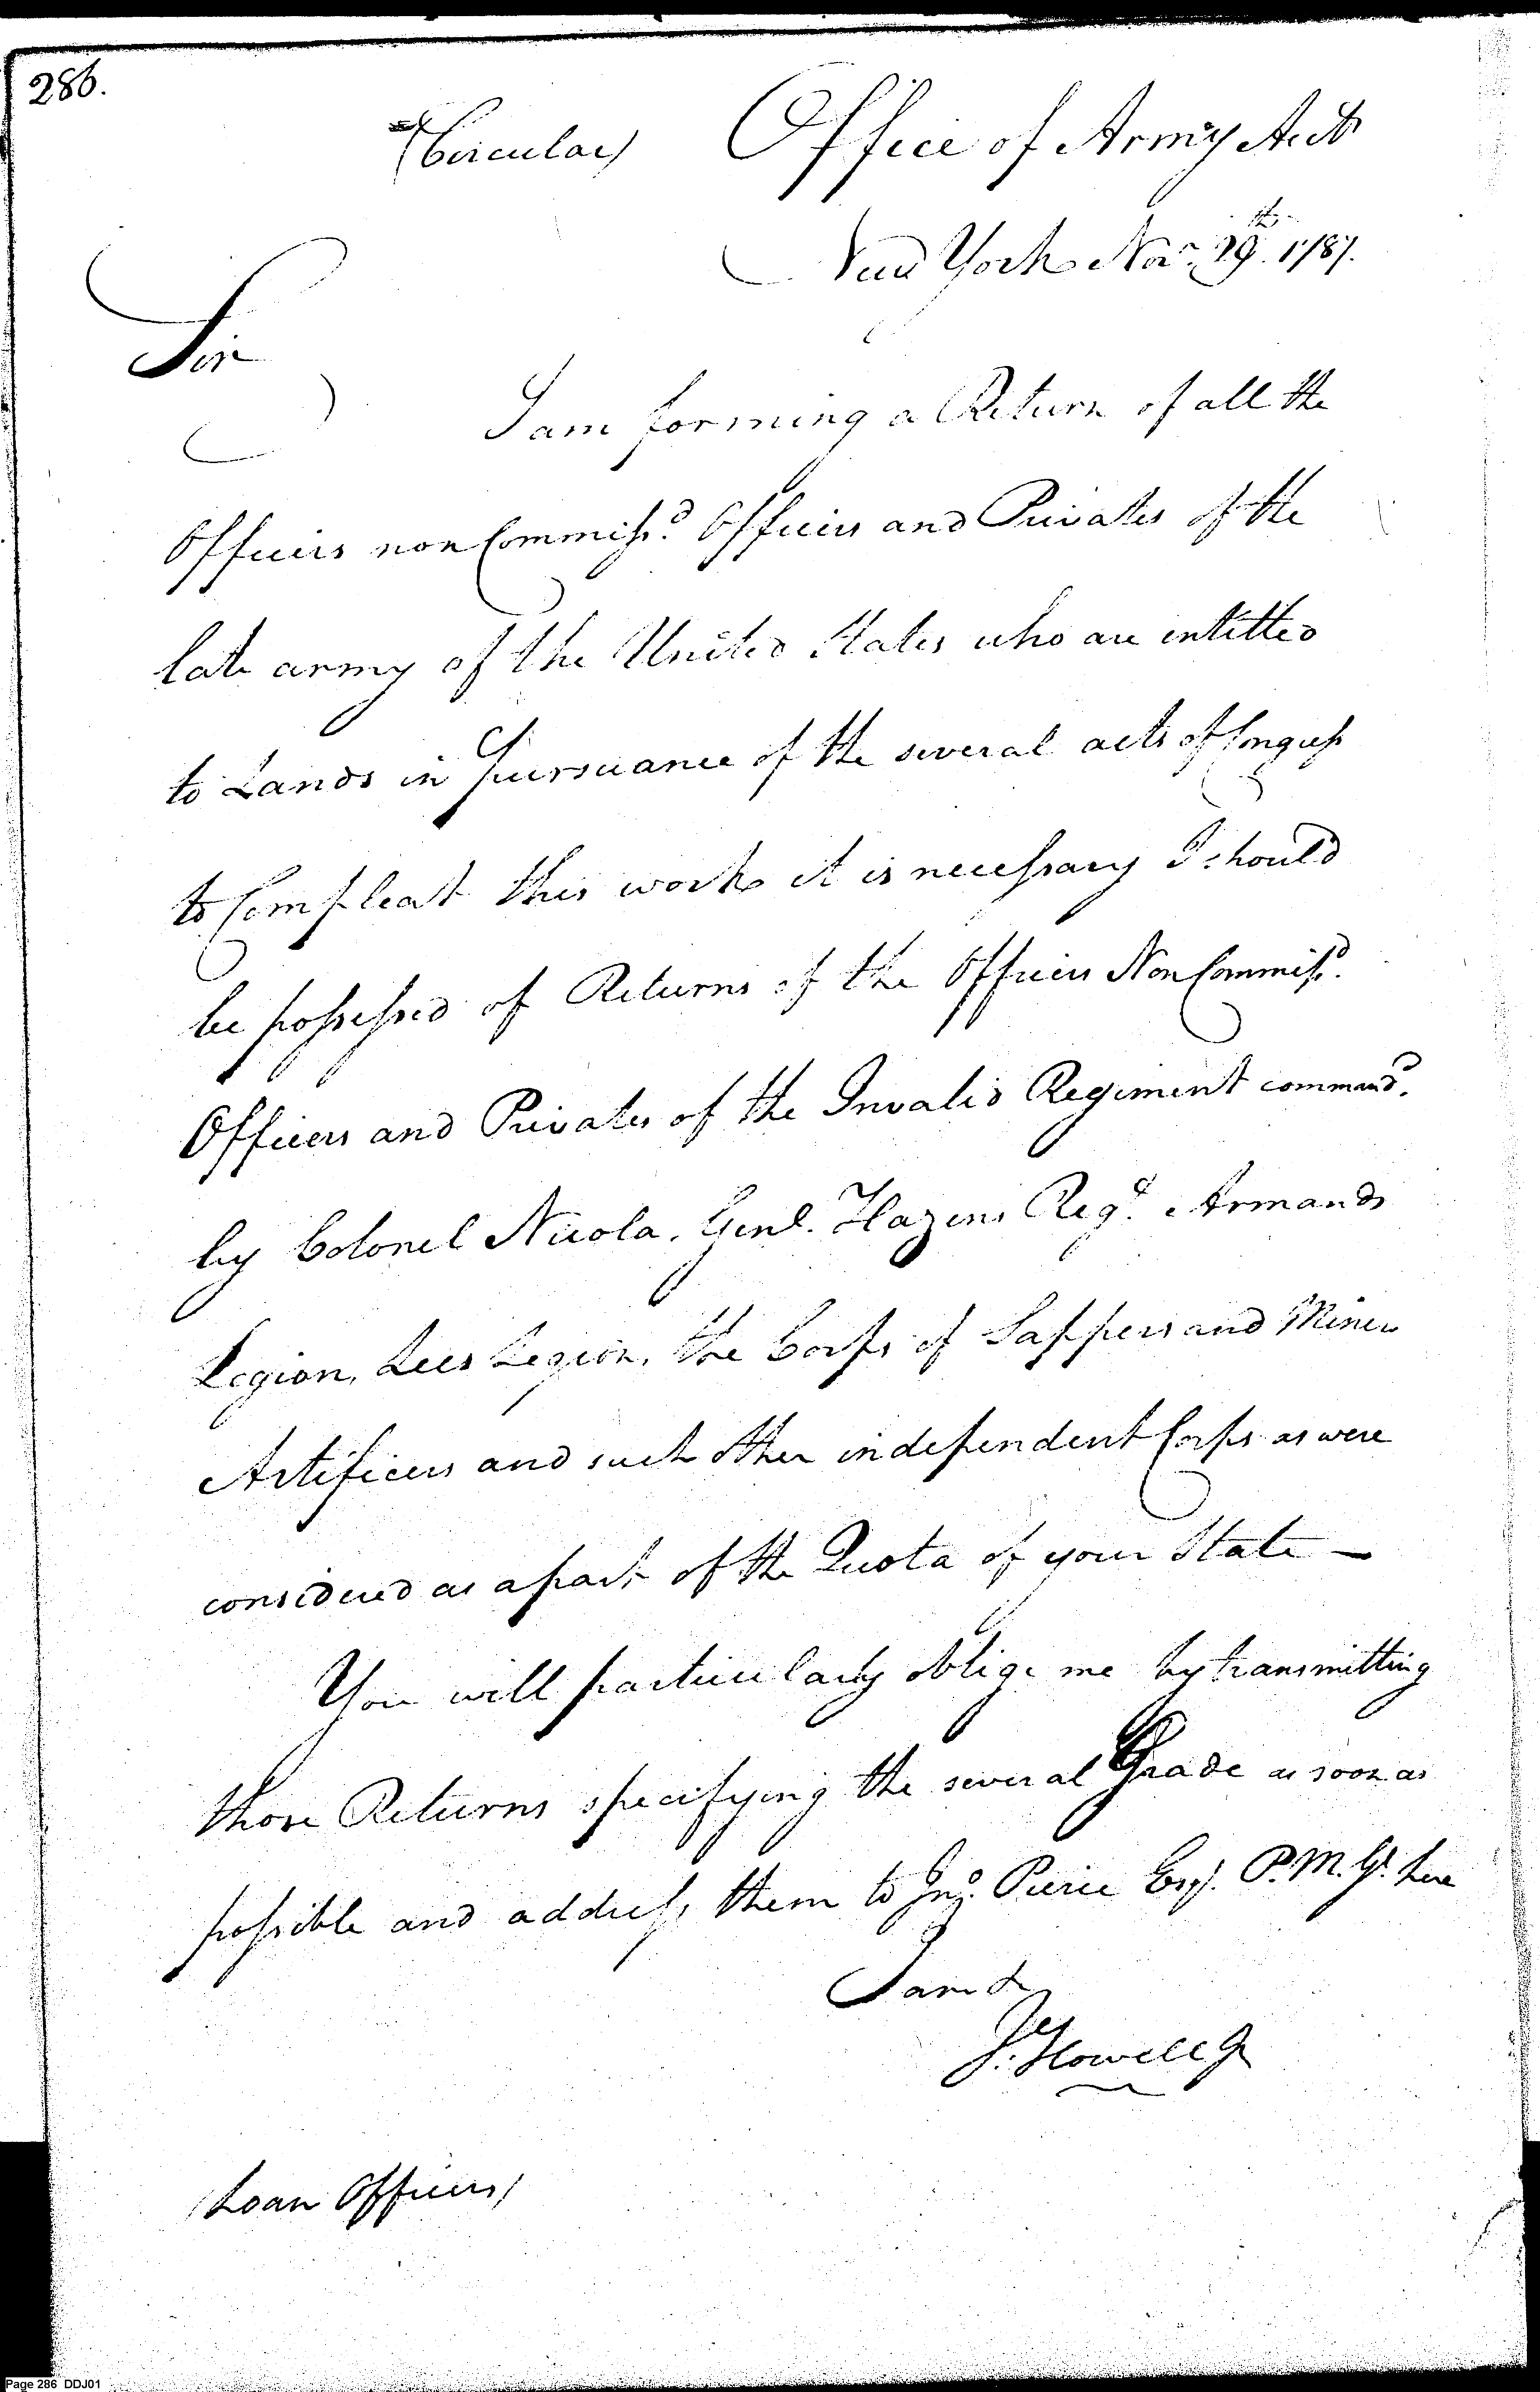 286.
(Circular) Office of Army Accts
New York Nov.r 29.th 1787.
Sir
I am forming a Return of all the
Officers non Commiss.d Officers and Privates of the
late army of the United States who are intitled
to Lands in Pursuance of the several acts of Congress
to Compleat this work it is necessary I should
be possessed of Returns of the Officers Non Commiss.d
Officers and Privates of the Invalid Regiment command.d
by Colonel Nicola. Genl. Hazens Reg.t Armands
Legion, Lees Legion, the Corps of Sappers and Miners
Artificers and such other independent Corps as were
considered as a part of the Quota of your State —
You will particularly oblige me by transmitting
those Returns specifying the several Grade as soon as
possible and address them to Jno. Pierce Esq. P.M.Gl. here
I am &
J. Howell Jr
(Loan Officers)
Page 286 DDJ01